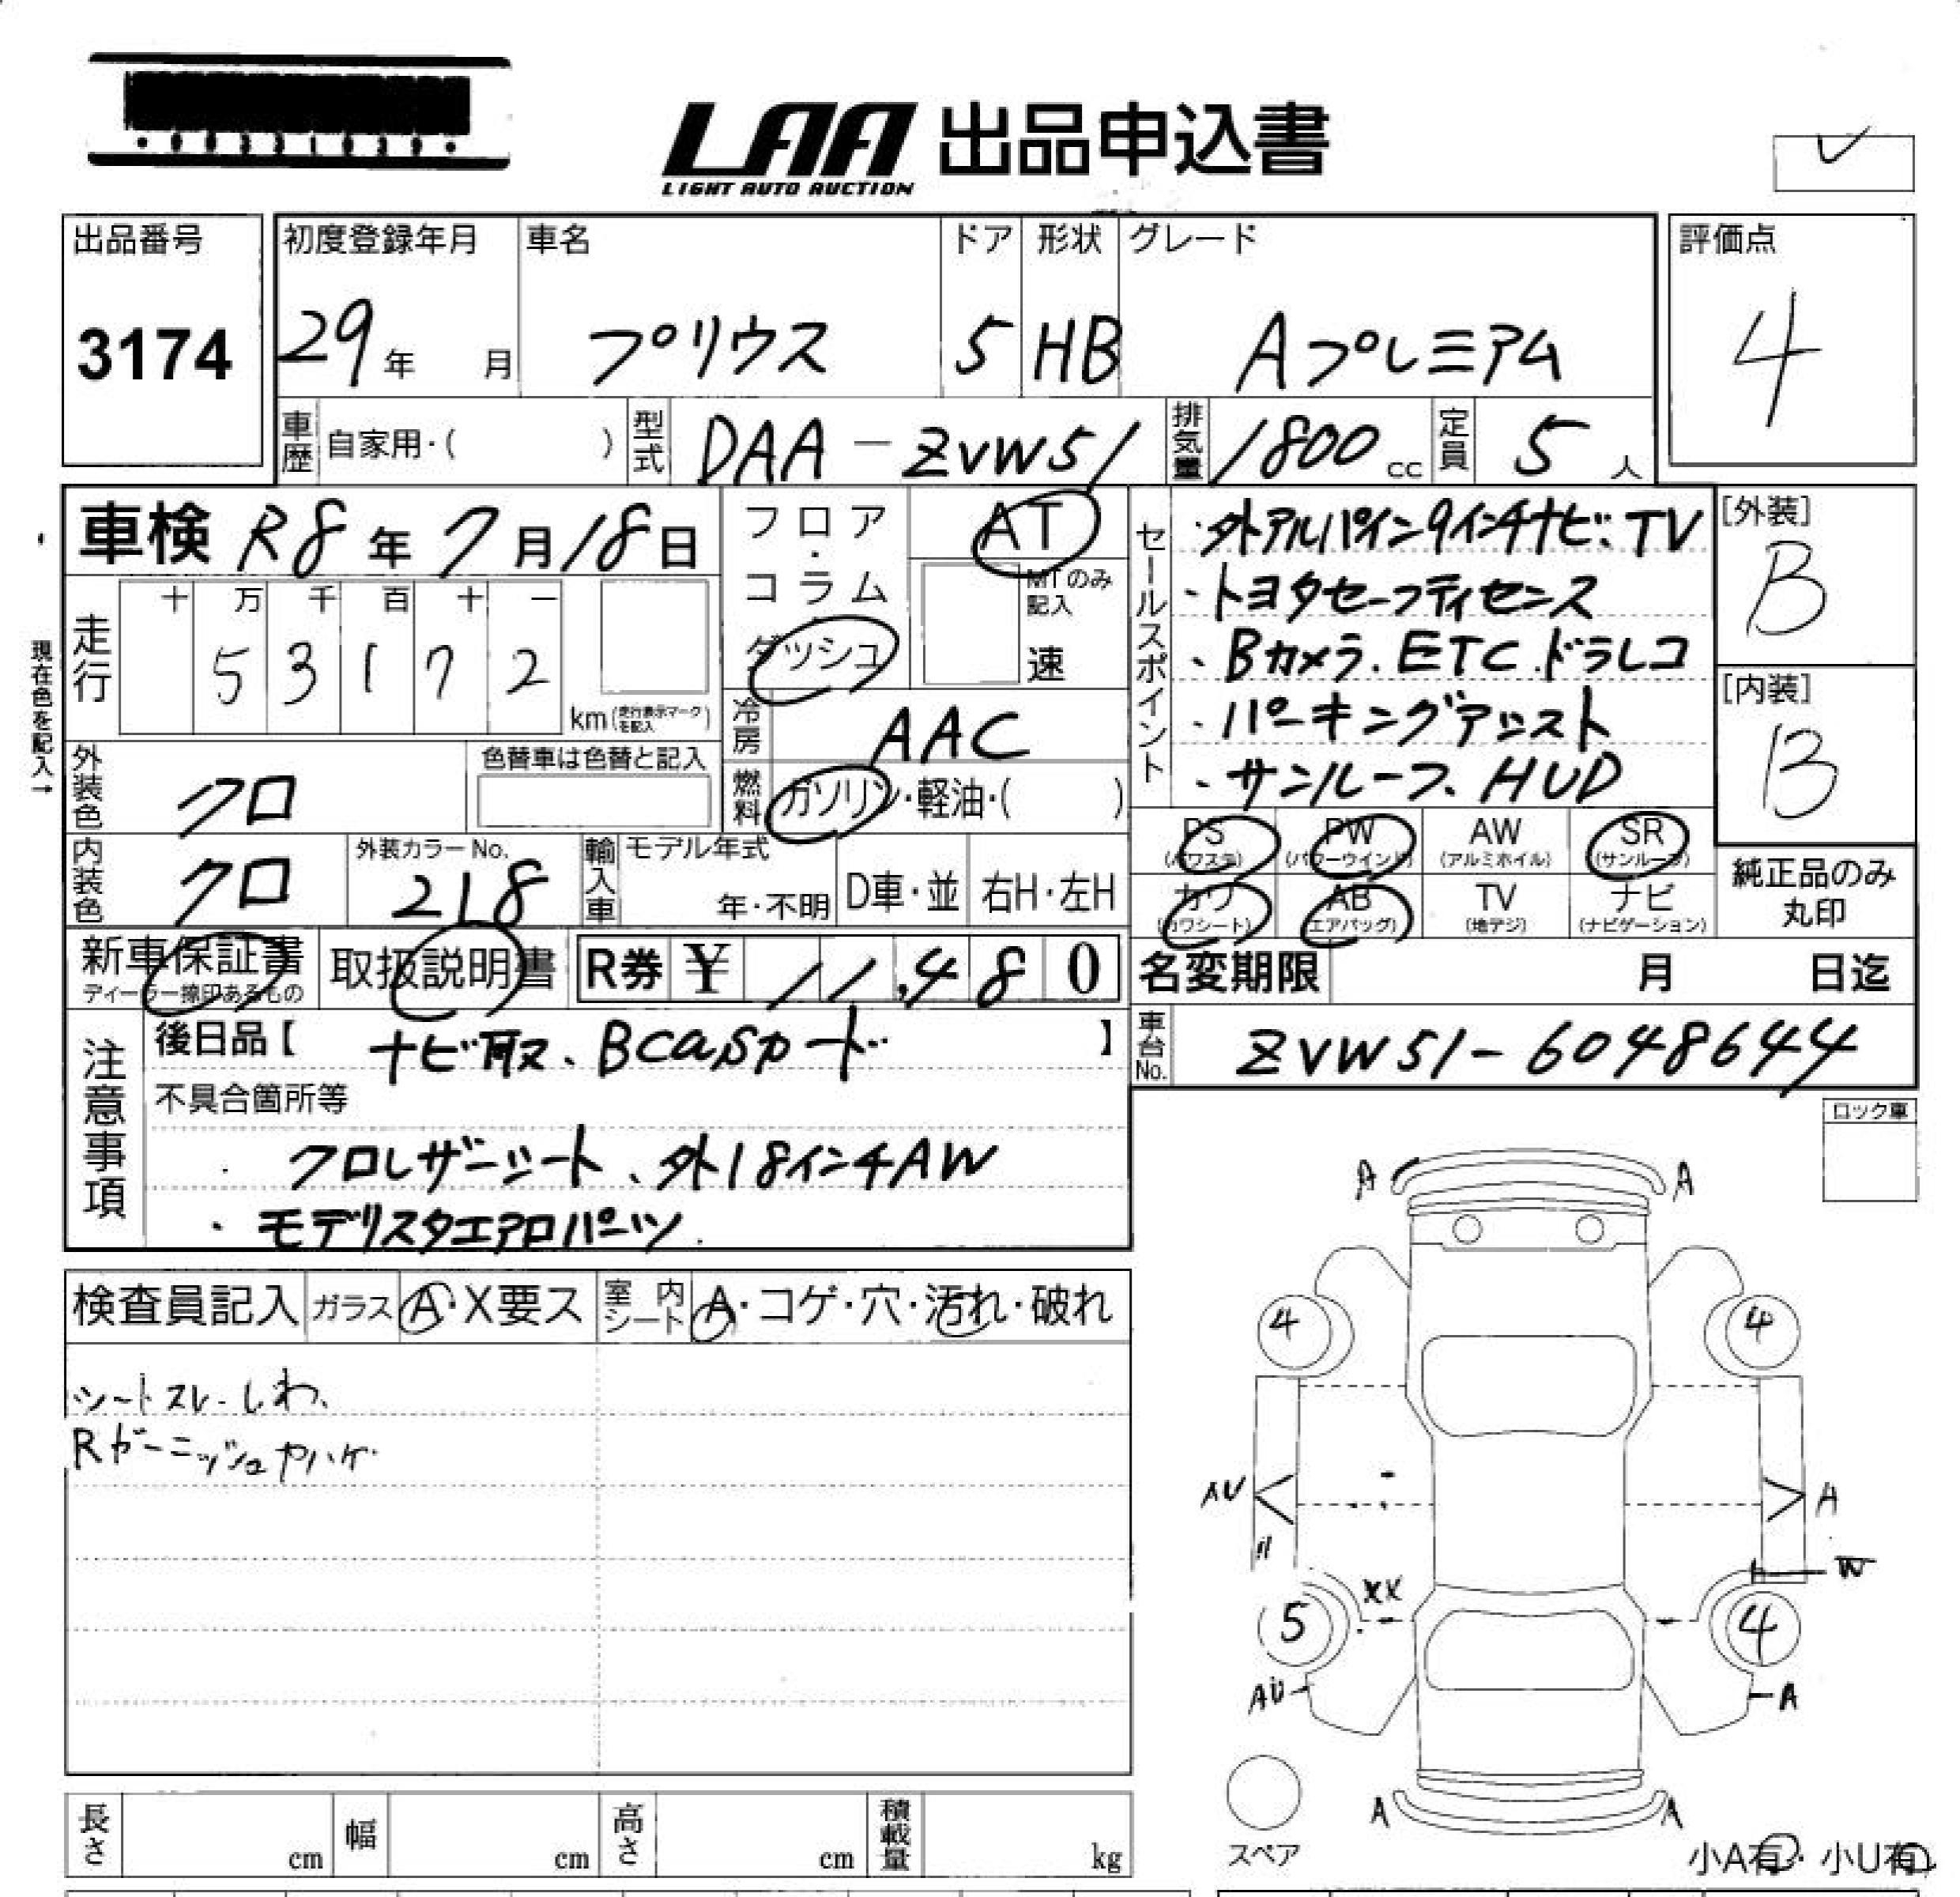 LAA 出品申込書
LIGHT AUTO AUCTION
出品番号
3174
初度登録年月
29年 月
車名
プリウス
ドア
5
形状
HB
グレード
Aプレミアム
評価点
4
車歴 自家用・( )
型式 DAA-ZVW51
排気量 1800 cc
定員 5 人
車検 R8年7月18日
現在色を記入→
走行
十 万 千 百 十 一
5 3 1 7 2
km(走行表示マークを記入)
フロア・コラム・ダッシュ
AT
MTのみ記入
速
冷房 AAC
燃料 ガソリン・軽油・( )
外装色 クロ
色替車は色替と記入
内装色 クロ
外装カラーNo.
218
輸入車
モデル年式
年・不明
D車・並
右H・左H
セールスポイント
・外アルパイン9インチナビ.TV
・トヨタセーフティセンス
・Bカメラ.ETC.ドラレコ
・パーキングアシスト
・サンルーフ、HUD
[外装]
B
[内装]
B
PS
(パワステ)
PW
(パワーウインド)
AW
(アルミホイル)
SR
(サンルーフ)
カワ
(カワシート)
AB
(エアバッグ)
TV
(地デジ)
ナビ
(ナビゲーション)
純正品のみ
丸印
新車保証書
ディーラー捺印あるもの
取扱説明書
R券 ¥ 11,480
名変期限 月 日迄
車台No. ZVW51-6048644
注意事項
後日品【 ナビ取、Bcasカード 】
不具合箇所等
・クロレザーシート、外18インチAW
・モデリスタエアロパーツ.
ロック車
検査員記入
ガラス A・X要ス
室内シート A・コゲ・穴・汚れ・破れ
シートスレ・しわ、
Rガーニッシュヤハケ
A A
4 4
AU A
〃
XX W
5 4
AU A
A A
スペア
小A有・小U有
長さ cm
幅 cm
高さ cm
積載量 kg